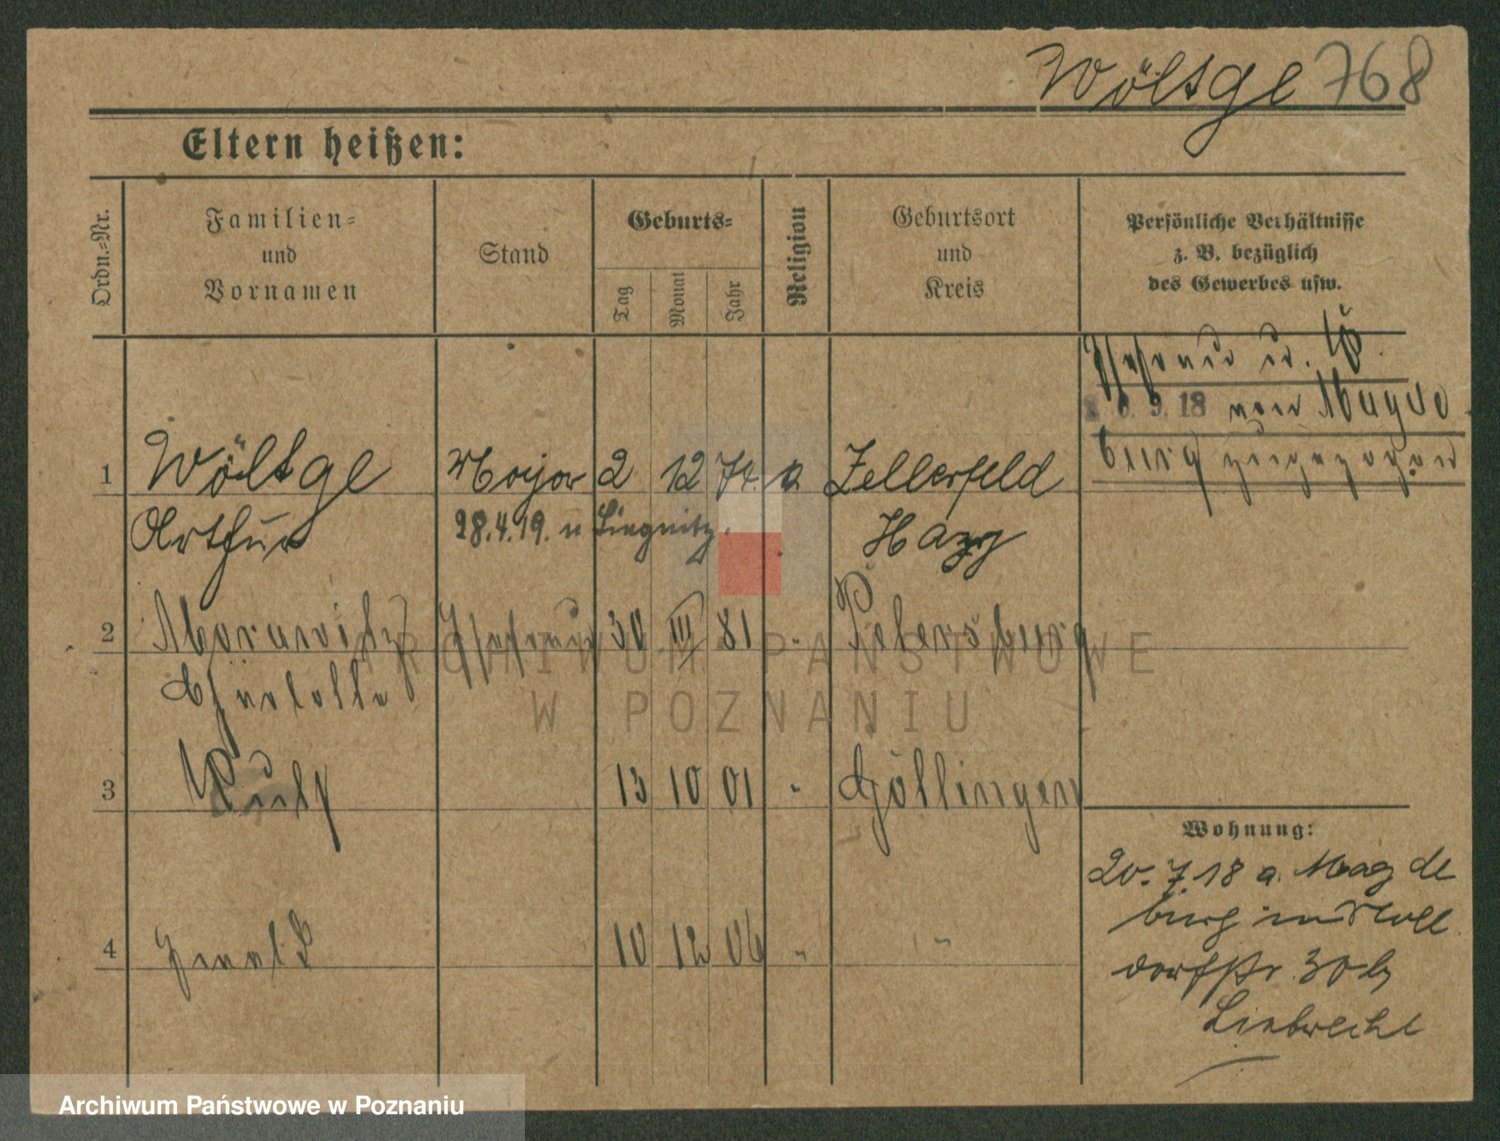 Wöltge 768
Eltern heißen:
Ordn.-Nr.
Familien-
und
Vornamen
Stand
Geburts-
Tag
Monat
Jahr
Religion
Geburtsort
und
Kreis
Persönliche Verhältnisse
z. B. bezüglich
des Gewerbes usw.
Ehefrau u.
9. 18 von Magde
burg zugezogen
1 Wöltge Major 2 12 74. Zellerfeld
Arthur 28.4.19. n Liegnitz. Harz
2 Ehefrau 30 III 81 - Petersburg
Charlotte
3 13 10 01 - Göttingen
Wohnung:
20. 7. 18 a. Magde
burg
dorfstr 30b
Liebrecht
4 10 12 06 " "
ARCHIWUM PAŃSTWOWE
W POZNANIU
Archiwum Państwowe w Poznaniu